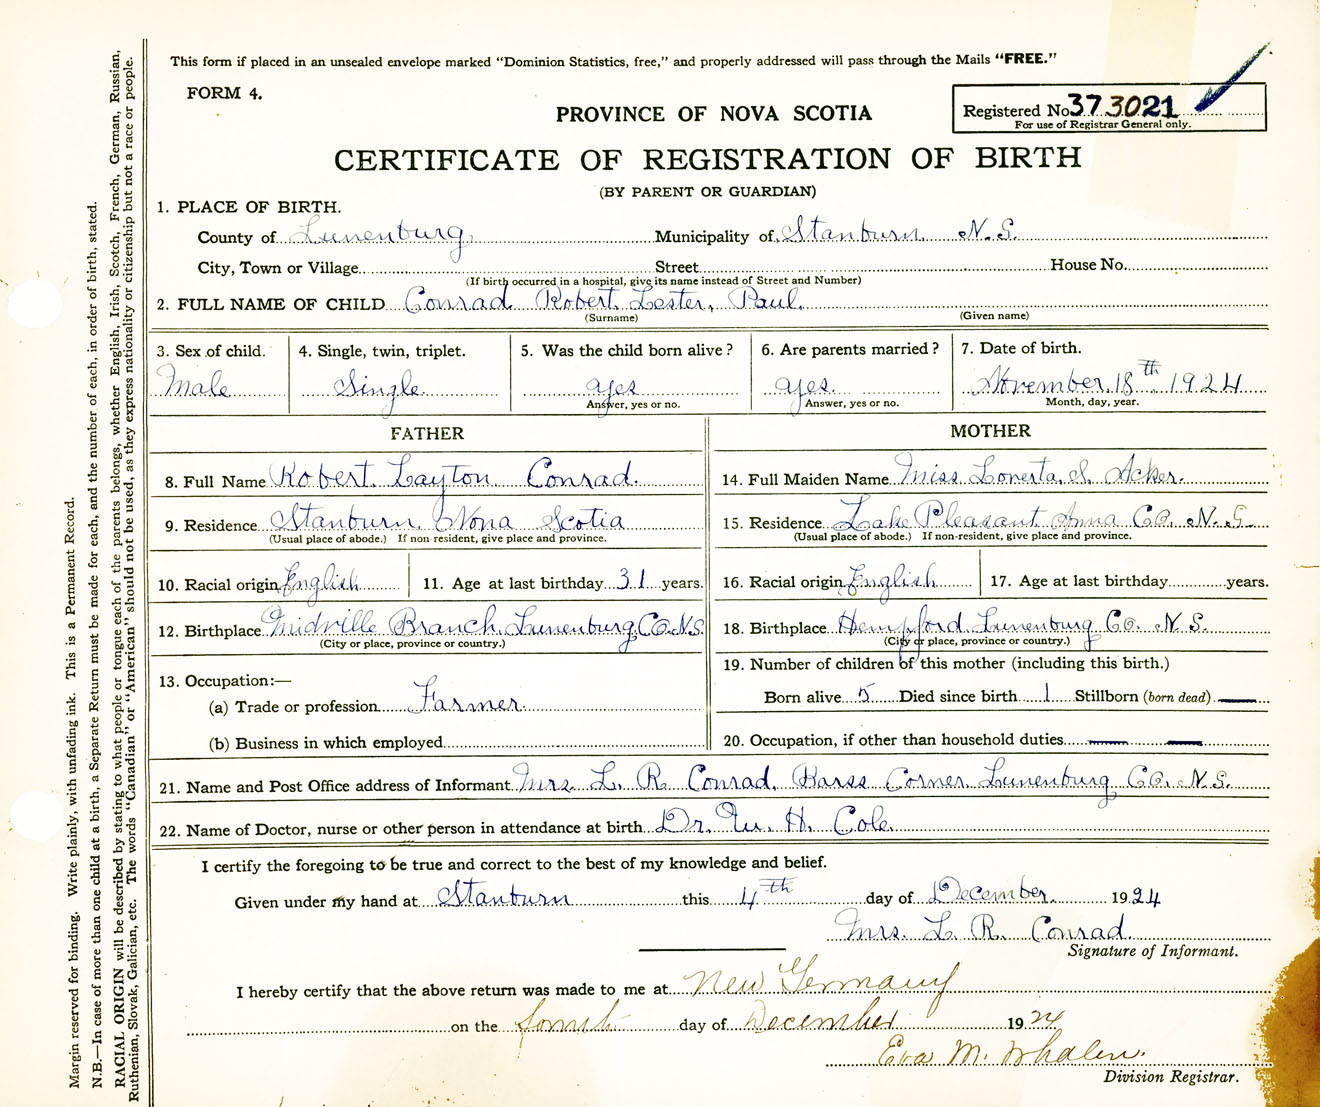 This form if placed in an unsealed envelope marked "Dominion Statistics, free," and properly addressed will pass through the Mails "FREE."
FORM 4.
PROVINCE OF NOVA SCOTIA
Registered No. 373021
For use of Registrar General only.
CERTIFICATE OF REGISTRATION OF BIRTH
(BY PARENT OR GUARDIAN)
1. PLACE OF BIRTH.
County of Lunenburg Municipality of Stanburn N.S.
City, Town or Village Street House No.
(If birth occurred in a hospital, give its name instead of Street and Number)
2. FULL NAME OF CHILD Conrad Robert Lester, Paul.
(Surname) (Given name)
3. Sex of child. 4. Single, twin, triplet. 5. Was the child born alive? 6. Are parents married? 7. Date of birth.
Male Single. yes yes. November. 18th 1924
Answer, yes or no. Answer, yes or no. Month, day, year.
FATHER MOTHER
8. Full Name Robert Layton Conrad. 14. Full Maiden Name Miss S. Acker.
9. Residence Stanburn Nova Scotia 15. Residence Lake Pleasant Anna Co. N.S.
(Usual place of abode.) If non resident, give place and province. (Usual place of abode.) If non-resident, give place and province.
10. Racial origin English 11. Age at last birthday 31 years. 16. Racial origin English 17. Age at last birthday years.
12. Birthplace Midville Branch. Lunenburg Co. N.S. 18. Birthplace Hempford Lunenburg Co. N.S.
(City or place, province or country.) (City or place, province or country.)
13. Occupation:— 19. Number of children of this mother (including this birth.)
(a) Trade or profession Farmer. Born alive 5 Died since birth 1 Stillborn (born dead) —
(b) Business in which employed 20. Occupation, if other than household duties — —
21. Name and Post Office address of Informant Mrs. L. R. Conrad, Barss Corner, Lunenburg Co. N.S.
22. Name of Doctor, nurse or other person in attendance at birth Dr. H. Cole.
I certify the foregoing to be true and correct to the best of my knowledge and belief.
Given under my hand at Stanburn this 4th day of December. 1924
Mrs. L. R. Conrad.
Signature of Informant.
I hereby certify that the above return was made to me at New Germany
on the day of December 1924
Eva M. Whalen.
Division Registrar.
Margin reserved for binding. Write plainly, with unfading ink. This is a Permanent Record.
N.B.—In case of more than one child at a birth, a Separate Return must be made for each, and the number of each, in order of birth, stated.
RACIAL ORIGIN will be described by stating to what people or tongue each of the parents belongs, whether English, Irish, Scotch, French, German, Russian,
Ruthenian, Slovak, Galician, etc. The words "Canadian" or "American" should not be used, as they express nationality or citizenship but not a race or people.